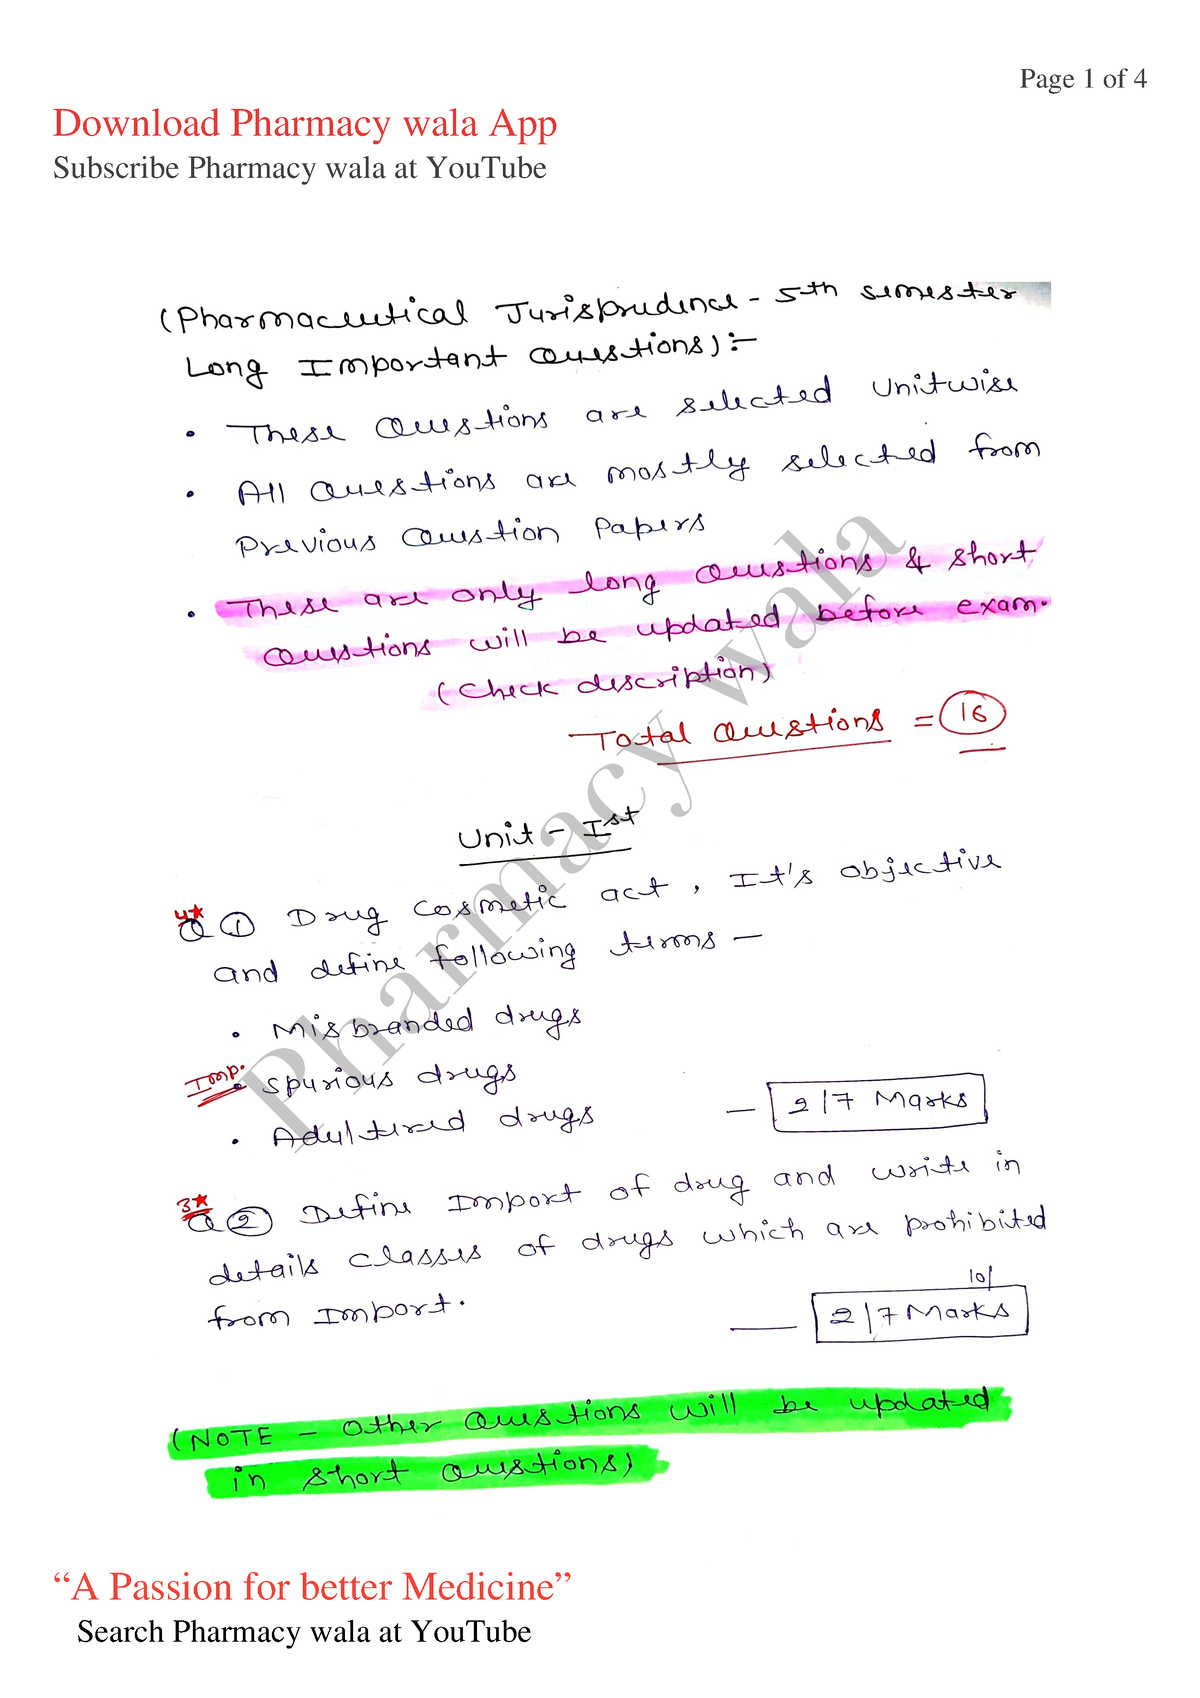 Page 1 of 4
Download Pharmacy wala App
Subscribe Pharmacy wala at YouTube
(Pharmaceutical Jurisprudence - 5th semester
Long Important Questions) :-
• These Questions are selected Unitwise
• All Questions are mostly selected from
Previous Question Papers
• These are only long Questions & short
Questions will be updated before exam.
(Check description)
Total Questions = 16
Unit - Ist
4★
Q 1 Drug Cosmetic act , It's objective
and define following terms —
• Misbranded drugs
Imp. • Spurious drugs
• Adultired drugs — 2/7 Marks
3★
Q 2 Define Import of drug and write in
details classes of drugs which are prohibited
from Import. — 2/7 Marks
10/
(NOTE - Other Questions will be updated
in short Questions)
Pharmacy wala
“A Passion for better Medicine”
Search Pharmacy wala at YouTube